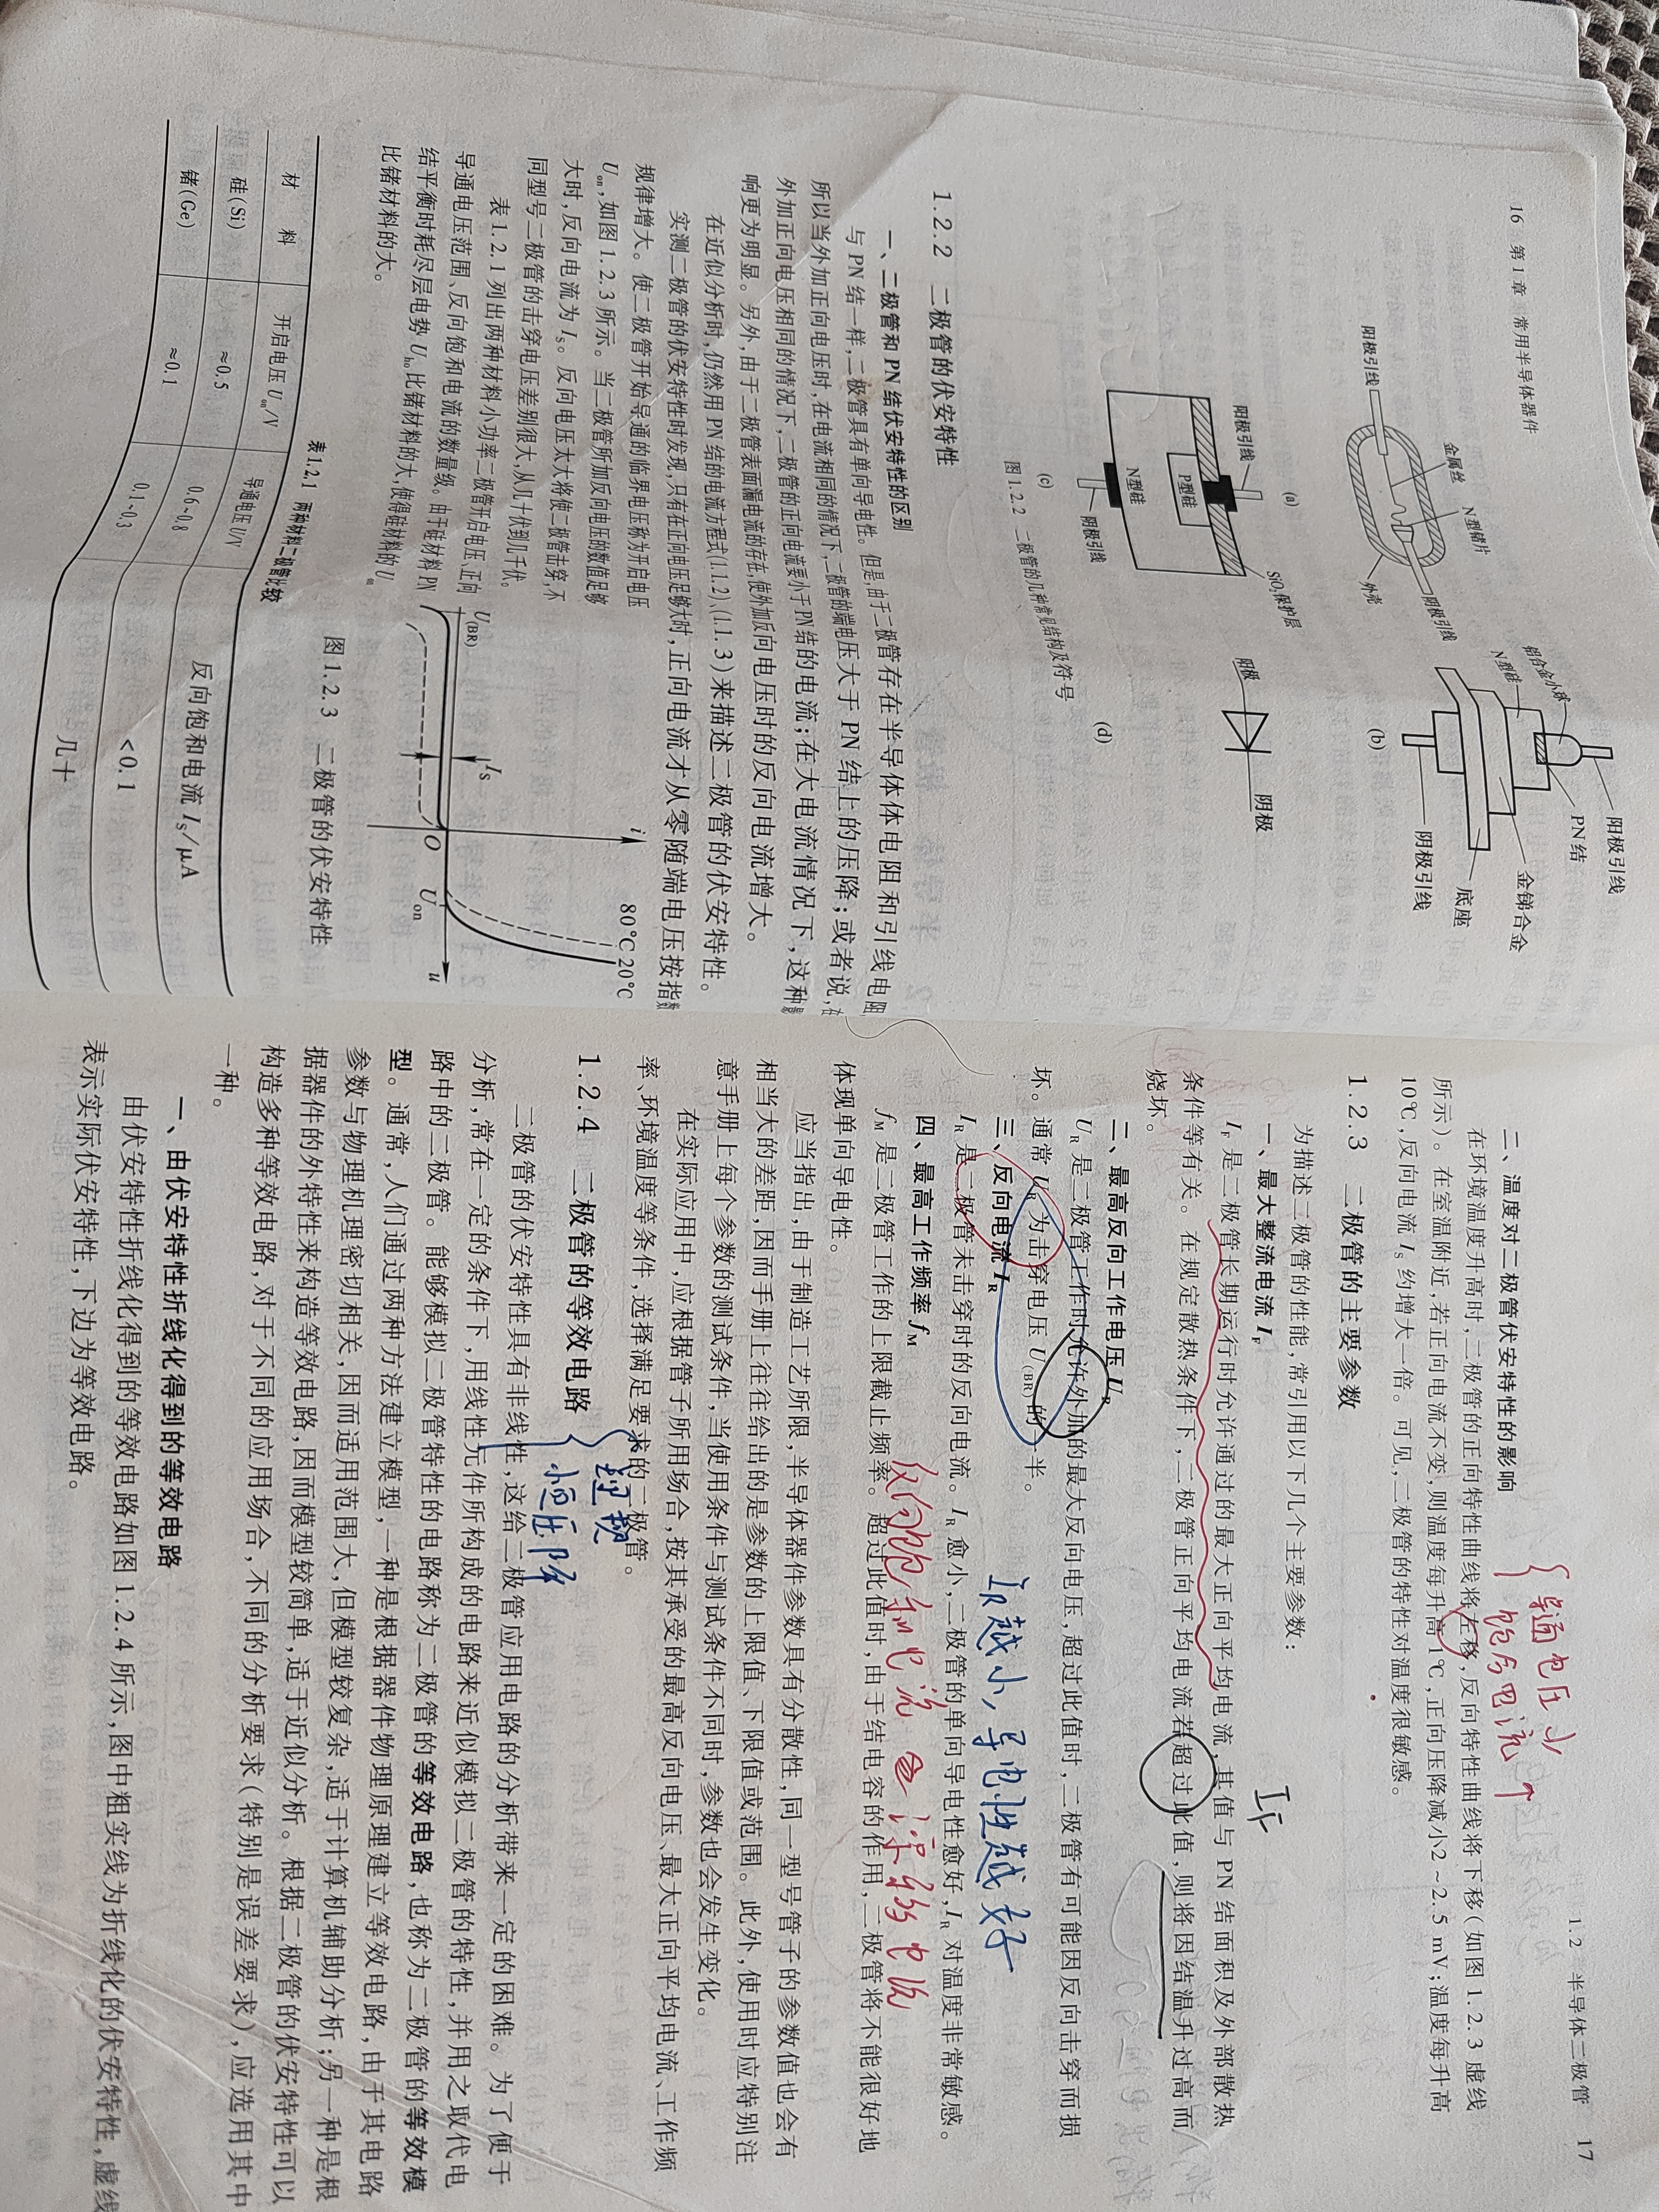 16 第1章 常用半导体器件
阳极引线
金属丝
N型锗片
外壳
阴极引线
(a)
铝合金小球
N型硅
阳极引线
PN结
金锑合金
底座
阴极引线
(b)
阳极引线
SiO₂保护层
P型硅
N型硅
阴极引线
(c)
阳极
阴极
(d)
图1.2.2 二极管的几种常见结构及符号
1.2.2 二极管的伏安特性
一、二极管和PN结伏安特性的区别
与PN结一样,二极管具有单向导电性。但是,由于二极管存在半导体体电阻和引线电阻,
所以当外加正向电压时,在电流相同的情况下,二极管的端电压大于PN结上的压降;或者说,在
外加正向电压相同的情况下,二极管的正向电流要小于PN结的电流;在大电流情况下,这种影
响更为明显。另外,由于二极管表面漏电流的存在,使外加反向电压时的反向电流增大。
在近似分析时,仍然用PN结的电流方程式(1.1.2)、(1.1.3)来描述二极管的伏安特性。
实测二极管的伏安特性时发现,只有在正向电压足够大时,正向电流才从零随端电压按指数
规律增大。使二极管开始导通的临界电压称为开启电压
Uon,如图1.2.3所示。当二极管所加反向电压的数值足够
大时,反向电流为IS。反向电压太大将使二极管击穿,不
同型号二极管的击穿电压差别很大,从几十伏到几千伏。
表1.2.1列出两种材料小功率二极管开启电压、正向
导通电压范围、反向饱和电流的数量级。由于硅材料PN
结平衡时耗尽层电势Uho比锗材料的大,使得硅材料的Uon
比锗材料的大。
i
80℃ 20℃
U(BR)
IS
O
Uon
u
图1.2.3 二极管的伏安特性
表1.2.1 两种材料二极管比较
材 料 开启电压Uon/V 导通电压U/V 反向饱和电流IS/μA
硅(Si) ≈0.5 0.6~0.8 <0.1
锗(Ge) ≈0.1 0.1~0.3 几十
1.2 半导体二极管 17
导通电压小
饱和电流↑
二、温度对二极管伏安特性的影响
在环境温度升高时,二极管的正向特性曲线将左移,反向特性曲线将下移(如图1.2.3虚线
所示)。在室温附近,若正向电流不变,则温度每升高1℃,正向压降减小2~2.5 mV;温度每升高
10℃,反向电流IS约增大一倍。可见,二极管的特性对温度很敏感。
1.2.3 二极管的主要参数
为描述二极管的性能,常引用以下几个主要参数:
一、最大整流电流IF
IF
IF是二极管长期运行时允许通过的最大正向平均电流,其值与PN结面积及外部散热
条件等有关。在规定散热条件下,二极管正向平均电流若超过此值,则将因结温升过高而
烧坏。
二、最高反向工作电压UR
UR是二极管工作时允许外加的最大反向电压,超过此值时,二极管有可能因反向击穿而损
坏。通常UR为击穿电压U(BR)的一半。
三、反向电流IR
IR越小,导电性越好
IR是二极管未击穿时的反向电流。IR愈小,二极管的单向导电性愈好,IR对温度非常敏感。
四、最高工作频率fM
fM是二极管工作的上限截止频率。超过此值时,由于结电容的作用,二极管将不能很好地
体现单向导电性。
应当指出,由于制造工艺所限,半导体器件参数具有分散性,同一型号管子的参数值也会有
相当大的差距,因而手册上往往给出的是参数的上限值、下限值或范围。此外,使用时应特别注
意手册上每个参数的测试条件,当使用条件与测试条件不同时,参数也会发生变化。
在实际应用中,应根据管子所用场合,按其承受的最高反向电压、最大正向平均电流、工作频
率、环境温度等条件,选择满足要求的二极管。
1.2.4 二极管的等效电路
理想
恒压降
二极管的伏安特性具有非线性,这给二极管应用电路的分析带来一定的困难。为了便于
分析,常在一定的条件下,用线性元件所构成的电路来近似模拟二极管的特性,并用之取代电
路中的二极管。能够模拟二极管特性的电路称为二极管的等效电路,也称为二极管的等效模
型。通常,人们通过两种方法建立模型,一种是根据器件物理原理建立等效电路,由于其电路
参数与物理机理密切相关,因而适用范围大,但模型较复杂,适于计算机辅助分析;另一种是根
据器件的外特性来构造等效电路,因而模型较简单,适于近似分析。根据二极管的伏安特性可以
构造多种等效电路,对于不同的应用场合,不同的分析要求(特别是误差要求),应选用其中
一种。
一、由伏安特性折线化得到的等效电路
由伏安特性折线化得到的等效电路如图1.2.4所示,图中粗实线为折线化的伏安特性,虚线
表示实际伏安特性,下边为等效电路。